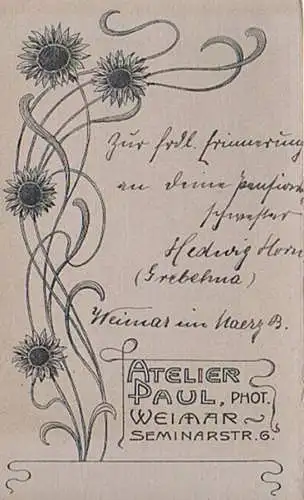 Zur frdl. Erinnerung
an deine Pensions-
schwester
Hedwig Horn
(Grebehna)
Weimar im Maerz
ATELIER
PAUL, PHOT.
WEIMAR
SEMINARSTR. 6.